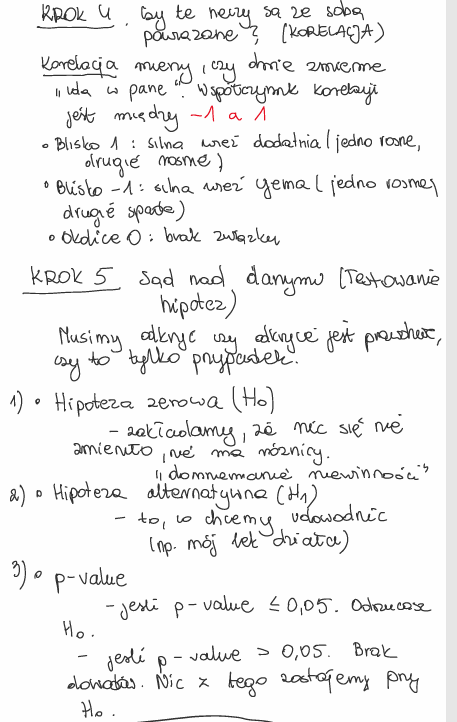 KROK 4. Czy te rzeczy są ze sobą
powiązane? (KORELACJA)
Korelacja mierzy, czy dwie zmienne
„idą w parze". Współczynnik korelacji
jest między -1 a 1
• Blisko 1 : silna więź dodatnia (jedno rośnie,
drugie rośnie)
• Blisko -1 : silna więź ujemna (jedno rośnie,
drugie spada)
• Okolice 0 : brak związku
KROK 5 Sąd nad danymi (Testowanie
hipotez)
Musimy odkryć czy odkrycie jest prawdziwe,
czy to tylko przypadek.
1) • Hipoteza zerowa (H₀)
- zakładamy, że nic się nie
zmieniło, nie ma różnicy.
„domniemanie niewinności"
2) • Hipoteza alternatywna (H₁)
- to, co chcemy udowodnić
(np. mój lek działa)
3) • p-value
- jeśli p-value ≤ 0,05. Odrzucasz
H₀.
- jeśli p-value > 0,05. Brak
dowodów. Nic z tego zostajemy przy
H₀.